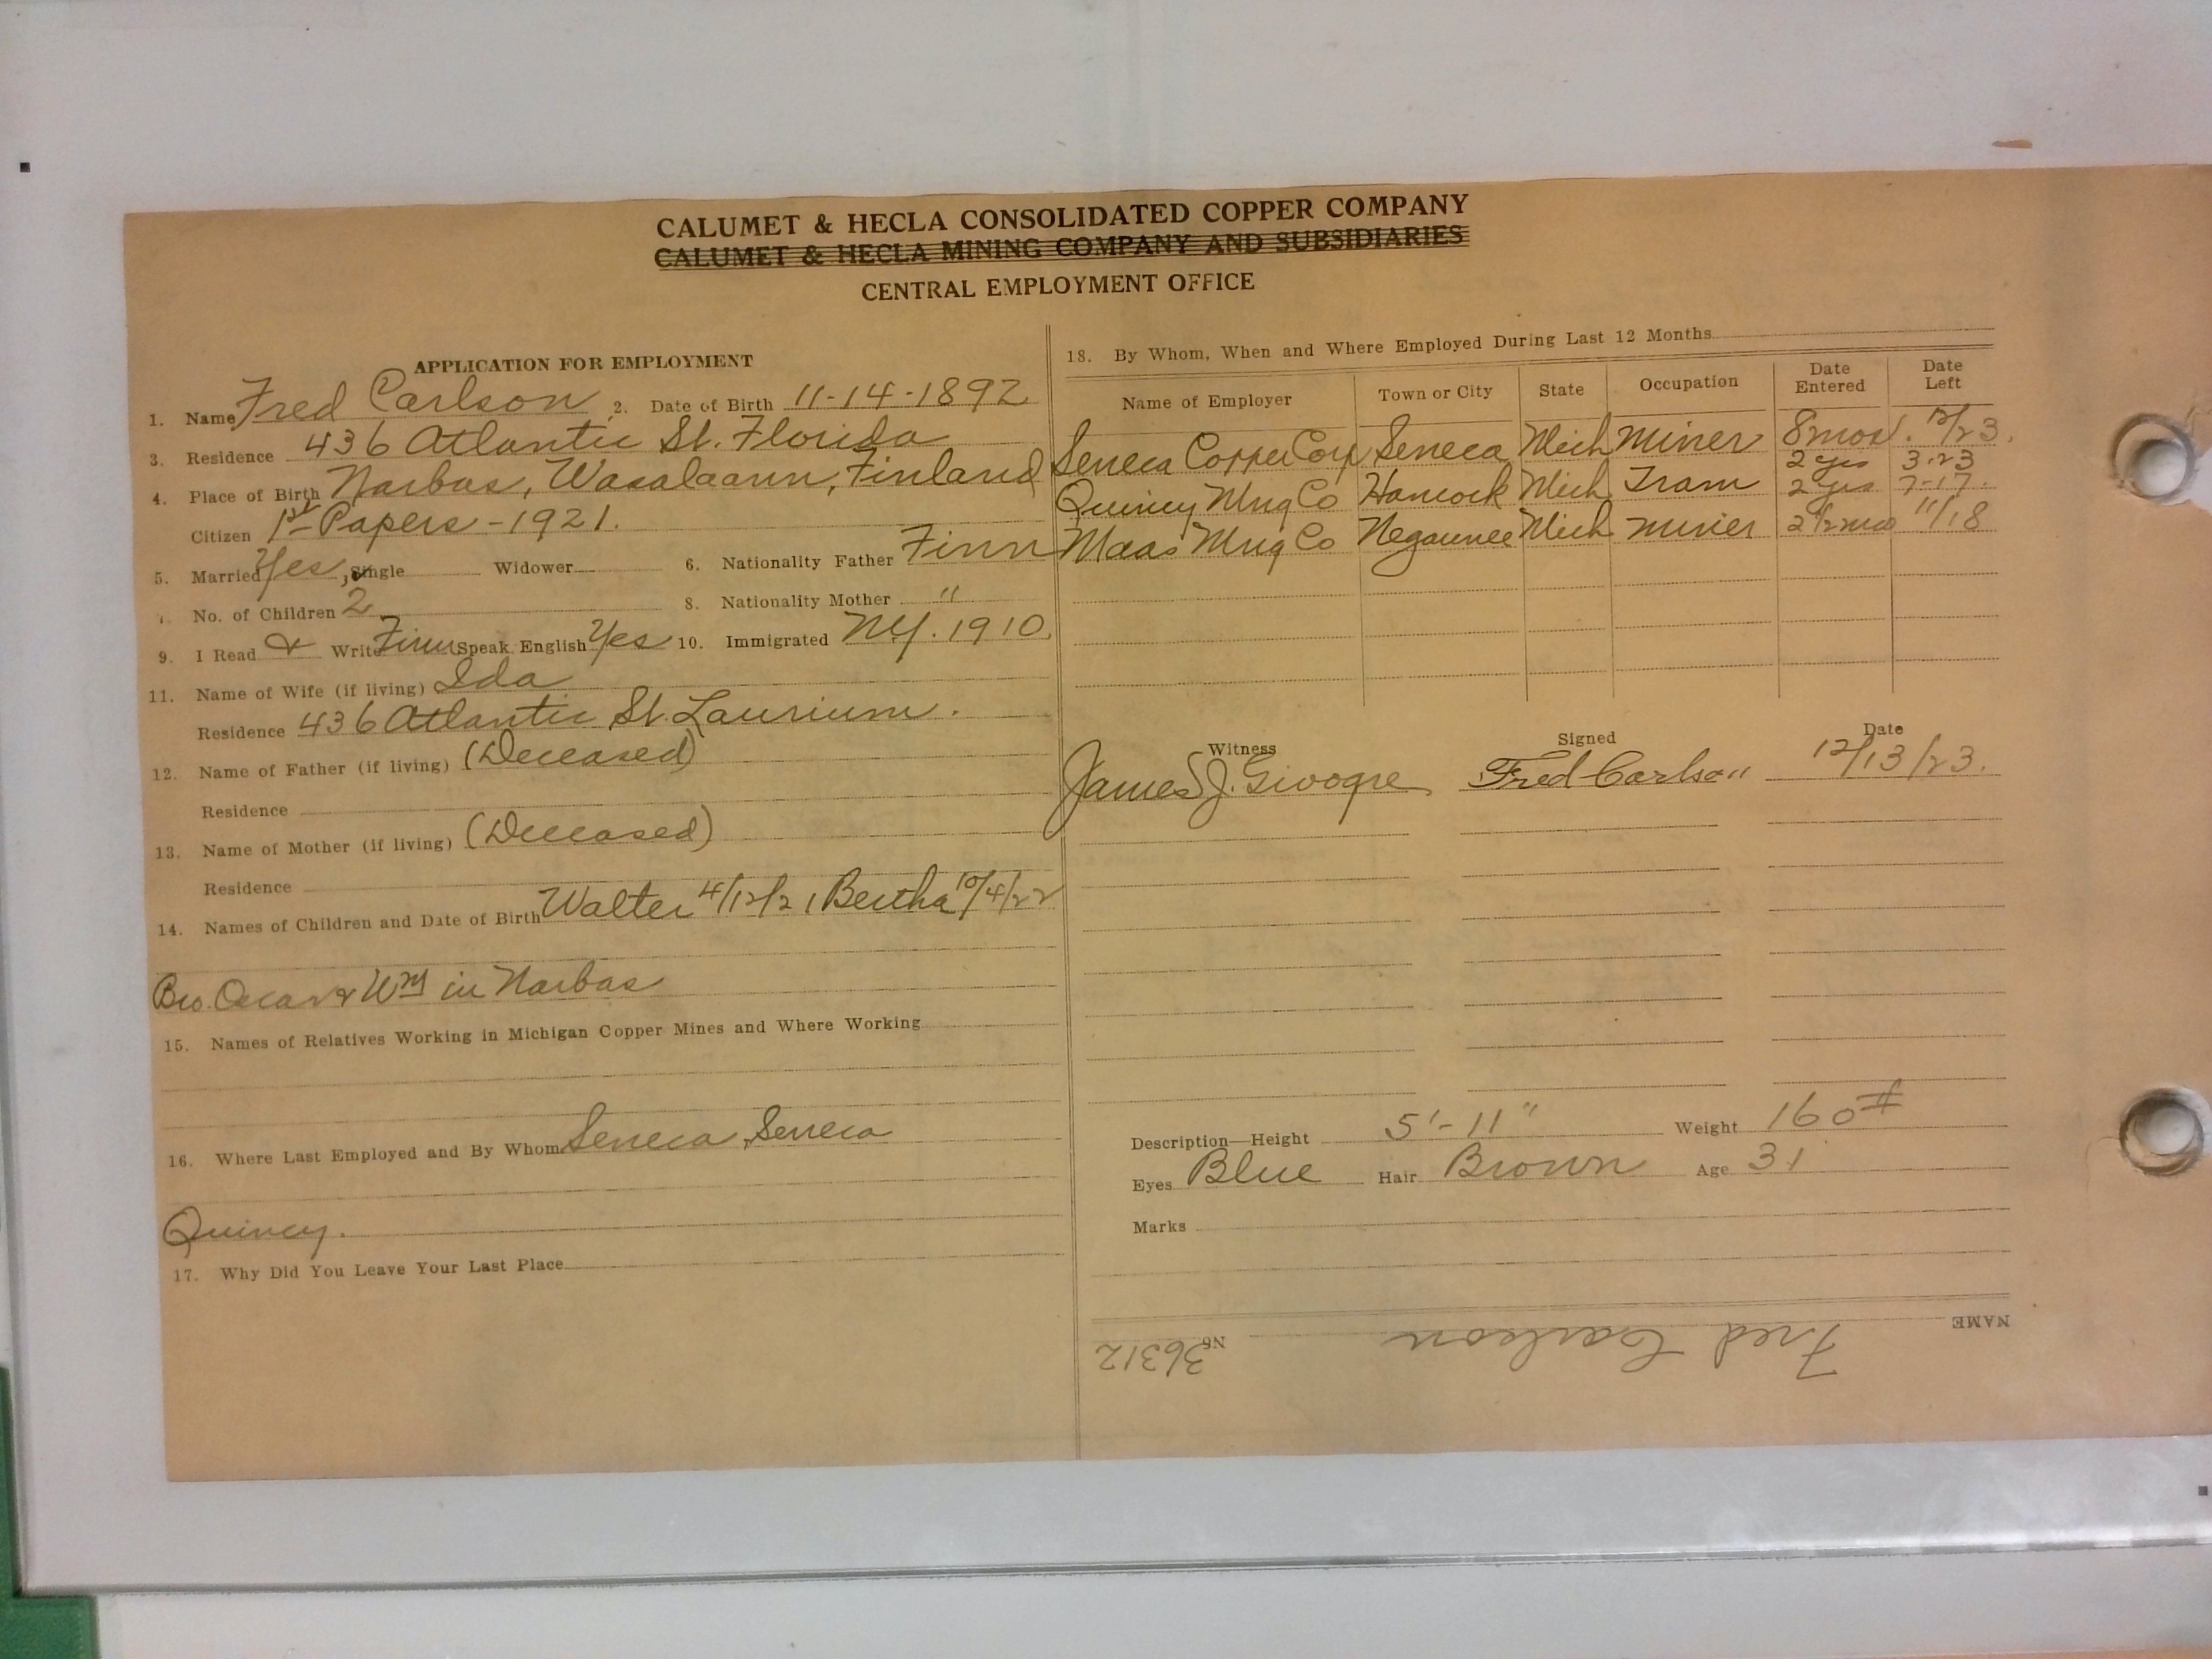 CALUMET & HECLA CONSOLIDATED COPPER COMPANY
CALUMET & HECLA MINING COMPANY AND SUBSIDIARIES
CENTRAL EMPLOYMENT OFFICE
APPLICATION FOR EMPLOYMENT
1. Name Fred Carlson 2. Date of Birth 11-14-1892
3. Residence 436 Atlantic St. Florida
4. Place of Birth Narbas, Wasalaann, Finland
Citizen 1st Papers - 1921.
5. Married Yes, Single Widower 6. Nationality Father Finn
7. No. of Children 2 8. Nationality Mother "
9. I Read & Write Finn Speak English Yes 10. Immigrated N.Y. 1910.
11. Name of Wife (if living) Ida
Residence 436 Atlantic St. Laurium.
12. Name of Father (if living) (Deceased)
Residence
13. Name of Mother (if living) (Deceased)
Residence
14. Names of Children and Date of Birth Walter 4/12/21 Bertha 10/4/22
Bro. Oscar & Wm in Narbas
15. Names of Relatives Working in Michigan Copper Mines and Where Working
16. Where Last Employed and By Whom Seneca, Seneca
Quincy.
17. Why Did You Leave Your Last Place
18. By Whom, When and Where Employed During Last 12 Months
Name of Employer Town or City State Occupation Date Entered Date Left
Seneca Copper Corp Seneca Mich Miner 8 mos. 12/23.
2 yrs 3-23
Quincy Mng Co Hancock Mich Tram 2 yrs 7-17.
Maas Mng Co Negaunee Mich Miner 2 1/2 mos 11/18
Witness Signed Date
James J. Givogre Fred Carlson 12/13/23.
Description—Height 5'-11" Weight 160#
Eyes Blue Hair Brown Age 31
Marks
NAME Fred Carlson No 36312